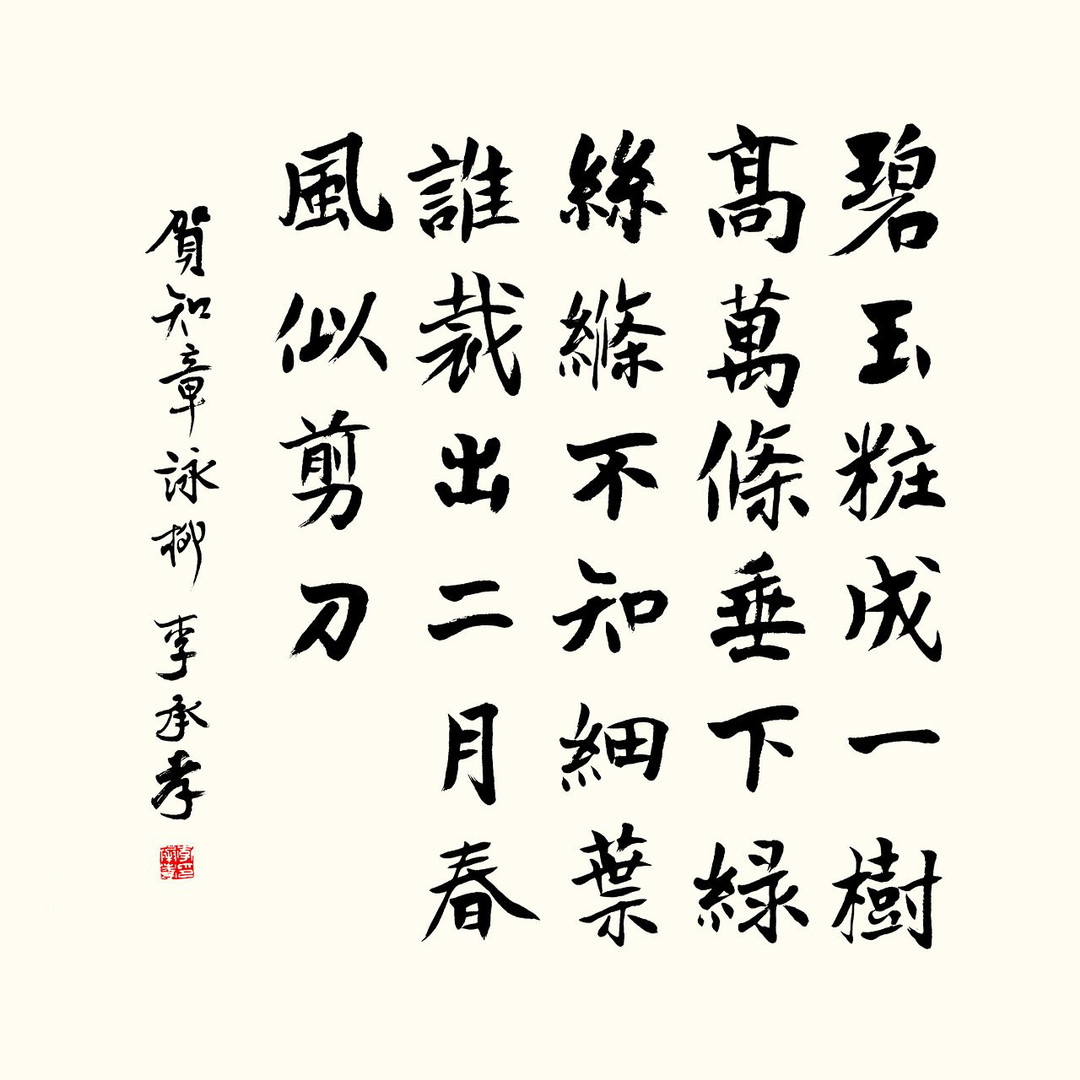 碧玉粧成一樹
髙萬條垂下緑
絲縧不知細葉
誰裁出二月春
風似剪刀
賀知章詠柳 李承孝